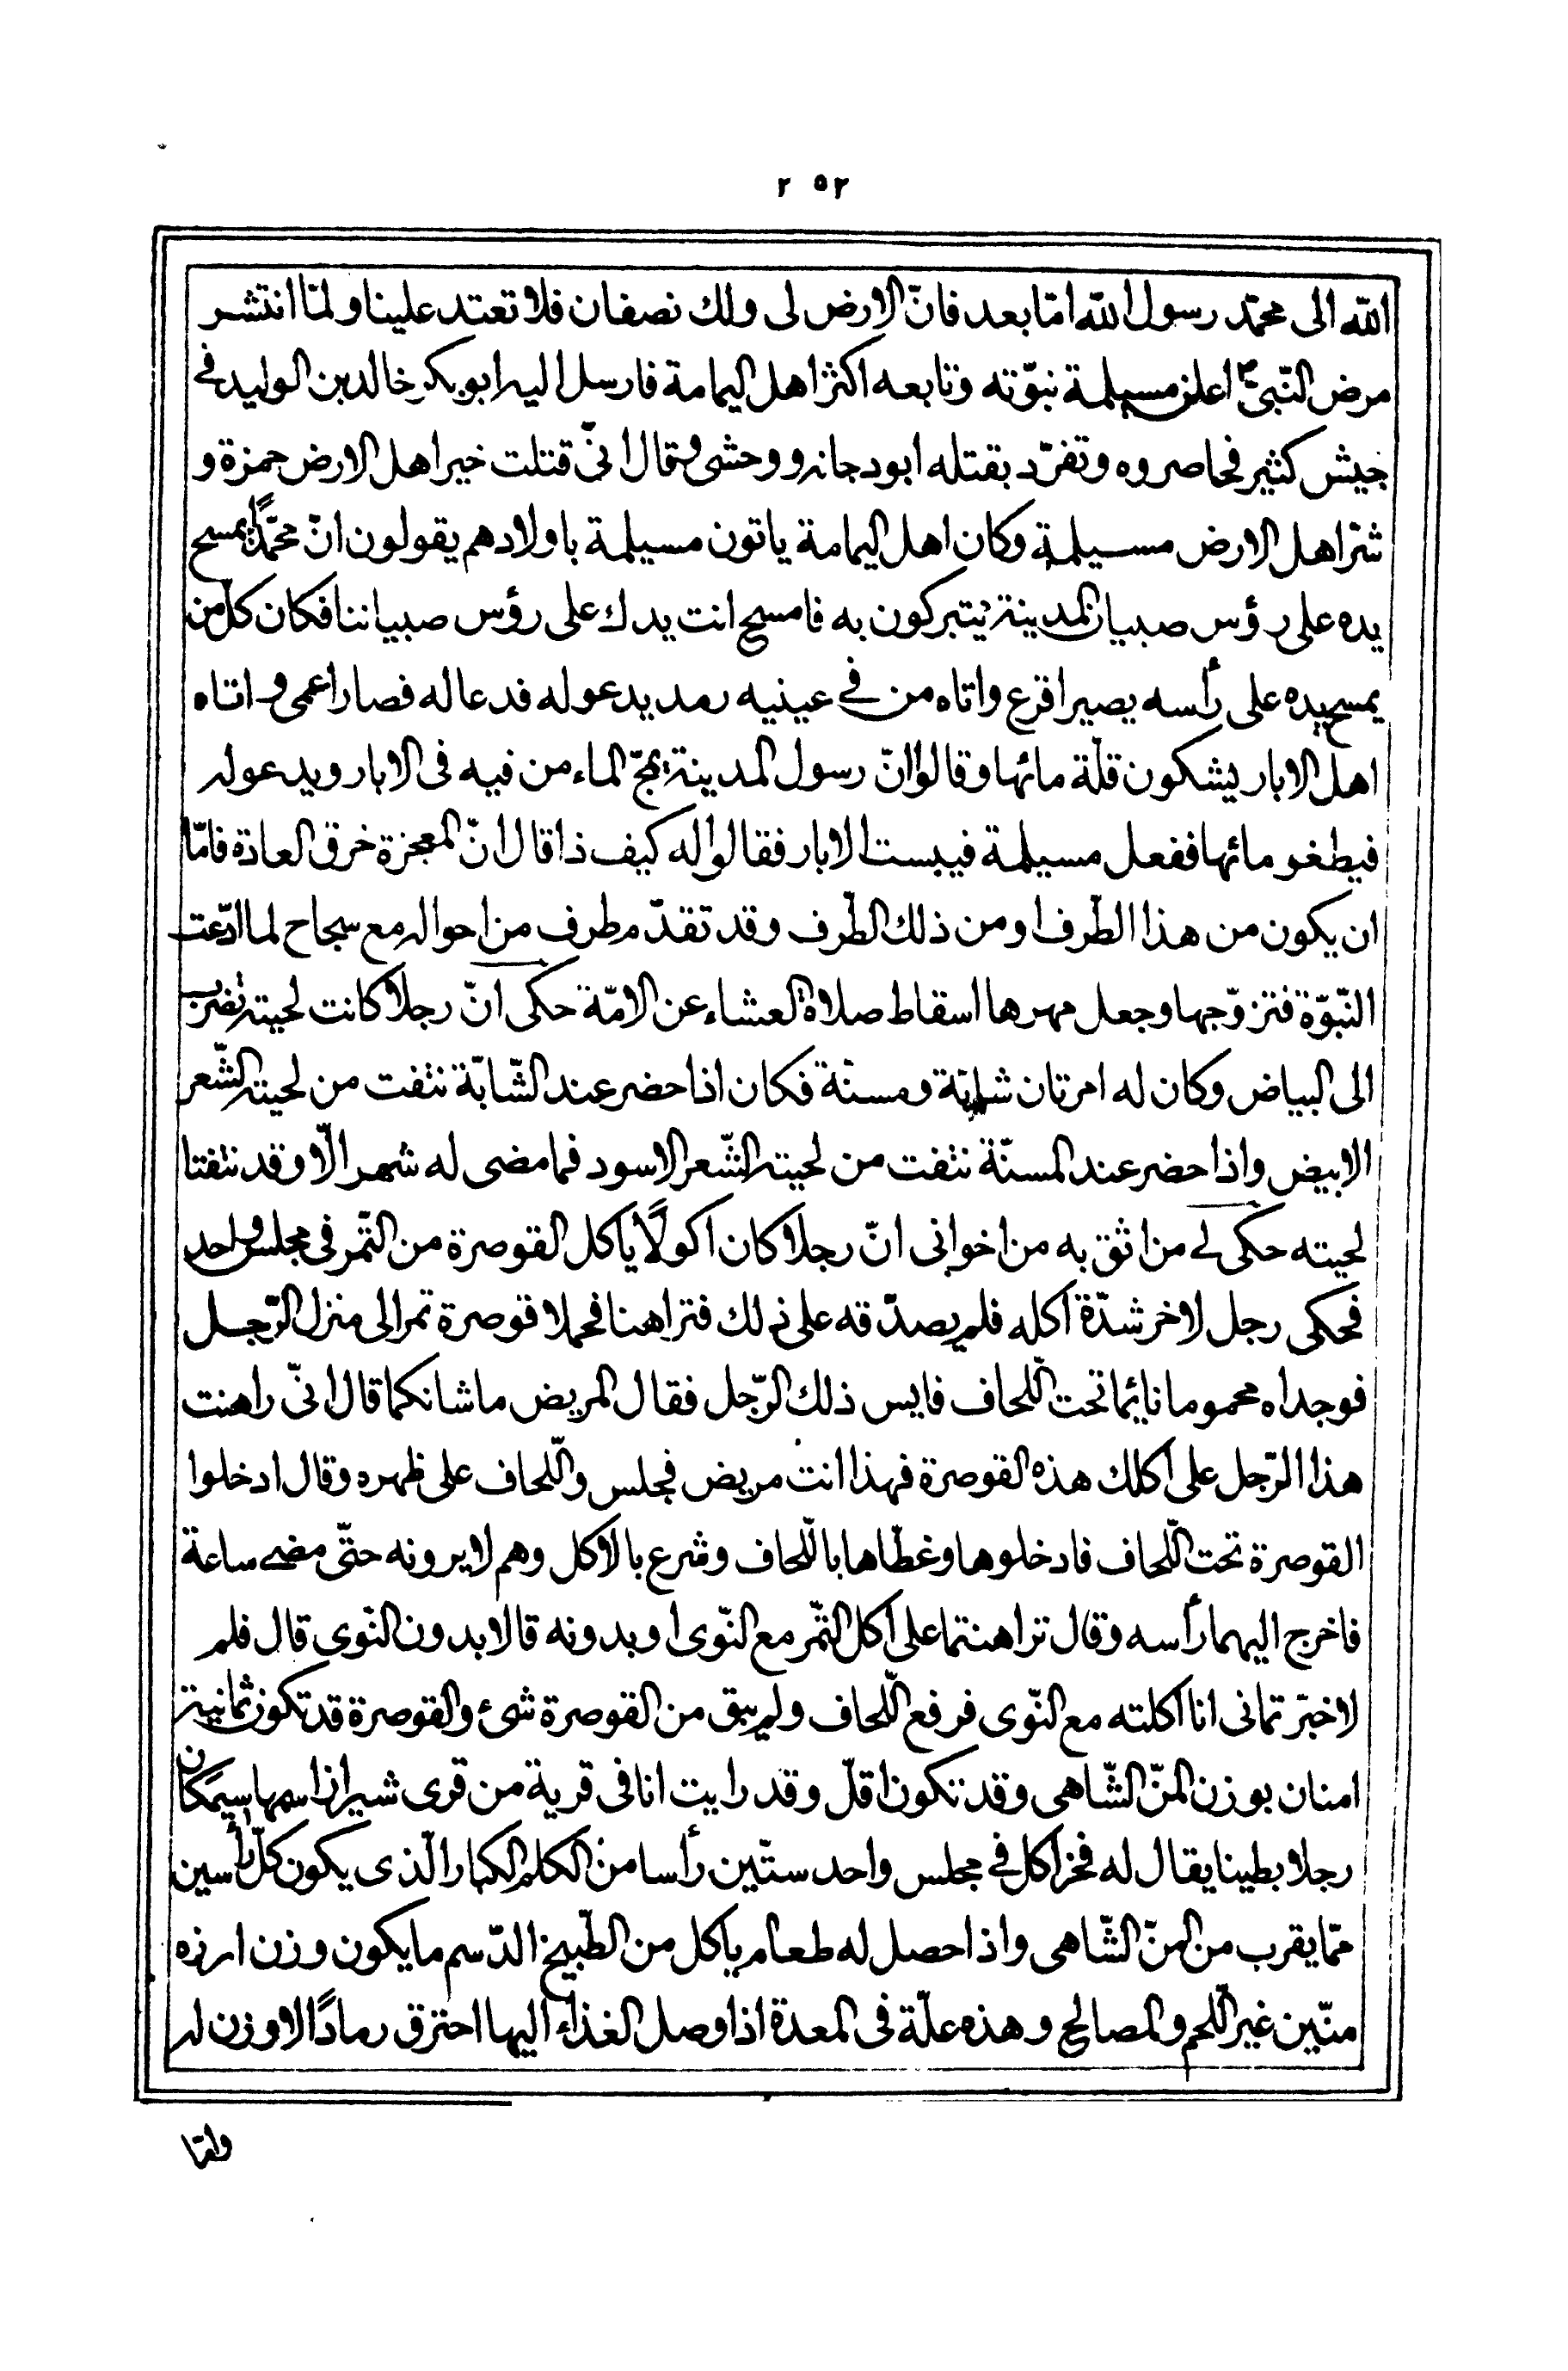 ٢٥٢
الله الى محمّد رسول الله امّا بعد فانّ الارض لى ولك نصفان فلا تعتد علينا ولمّا انتشر
مرض النّبىّ اعلن مسيلمة نبوّته وتابعه اكثر اهل اليمامة فارسل اليه ابوبكر خالد بن الوليد فى
جيش كثير فحاصروه وتفرّد بقتله ابودجانه ووحشى وقال انّى قتلت خير اهل الارض حمزة و
شرّ اهل الارض مسيلمة وكان اهل اليمامة ياتون مسيلمة باولادهم يقولون انّ محمّدًا يمسح
يده على رؤس صبيان المدينة يتبركون به فامسح انت يدك على رؤس صبياننا فكان كل من
يمسح يده على رأسه يصير اقرع واتاه من فى عينيه رمد يدعو له فدعا له فصار اعمى واتاه
اهل الابار يشكون قلّة مائها وقالوا انّ رسول المدينة يمجّ الماء من فيه فى الابار ويدعو له
فيطغو مائها ففعل مسيلمة فيبست الابار فقالوا له كيف ذا قال انّ المعجزة خرق العادة فامّا
ان يكون من هذا الطّرف او من ذلك الطّرف وقد تقدّم طرف من احواله مع سجاح لما ادّعت
النّبوّة فتزوّجها وجعل مهرها اسقاط صلاة العشاء عن الامّة حكى انّ رجلا كانت لحيته تضرب
الى البياض وكان له امرتان شابّة ومسنّة فكان اذا حضر عند الشّابّة نتفت من لحيته الشّعر
الابيض واذا حضر عند المسنّة نتفت من لحيته الشّعر الاسود فما مضى له شهر الّا وقد نتفتا
لحيته حكى لى من اثق به من اخوانى انّ رجلا كان اكولًا ياكل القوصرة من التّمر فى مجلس واحد
فحكى رجل لاخر شدّة اكله فلم يصدّقه على ذلك فتراهنا فحملا قوصرة تمر الى منزل الرّجل
فوجداه محموما نائما تحت اللّحاف فايس ذلك الرّجل فقال المريض ما شانكما قال انّى راهنت
هذا الرّجل على اكلك هذه القوصرة فهذا انت مريض فجلس واللّحاف على ظهره وقال ادخلوا
القوصرة تحت اللّحاف فادخلوها وغطّاها باللّحاف وشرع بالاكل وهم لا يرونه حتّى مضى ساعة
فاخرج اليهما رأسه وقال تراهنتما على اكل التّمر مع النّوى او بدونه قالا بدون النّوى قال فلم
لا خبرّتمانى انا اكلته مع النّوى فرفع اللّحاف ولم يبق من القوصرة شئ والقوصرة قد تكون ثمانية
امنان بوزن المنّ الشّاهى وقد تكون اقلّ وقد رايت انا فى قرية من قرى شيراز اسمها سيمكان
رجلا بطينا يقال له فخر اكل فى مجلس واحد ستّين رأسا من الكلم الكبار الّذى يكون كلّ رأسين
ممّا يقرب من المنّ الشّاهى واذا حصل له طعام ياكل من الطّبيخ الدّسم ما يكون وزن ارزه
منّين غير اللّحم والمصالح وهذه علّة فى المعدة اذا وصل الغذاء اليها احترق رمادًا لا وزن له
وامّا